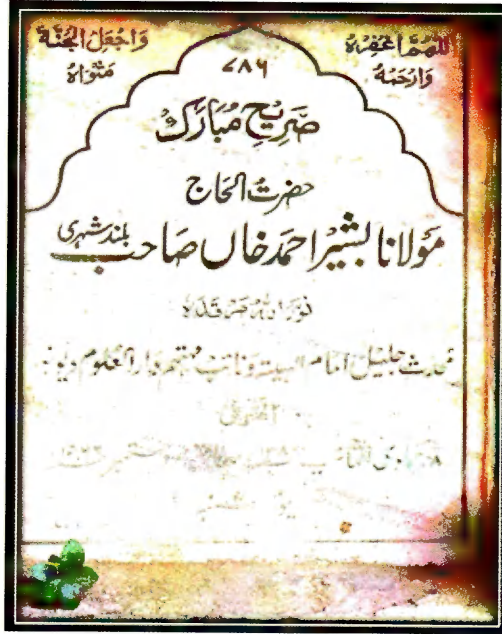 اللهم اغفره
وارحمه
واجعل الجنة
مثواه
۷۸۶
ضریح مبارک
حضرت الحاج
مولانا بشیر احمد خاں صاحب بلند شہری
نور اللہ مرقدہ
محدث جلیل امام الہیئۃ و نائب مہتمم دار العلوم دیو
المتوفی